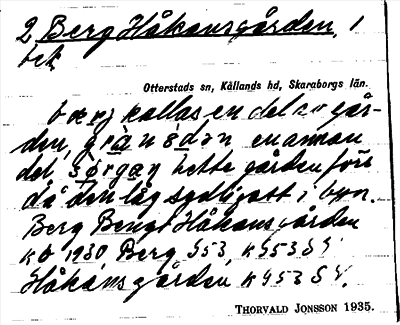 2 Berg Håkansgården, 1
bek.
Otterstads sn, Kållands hd, Skaraborgs län.
bærj kallas en del av går-
den, grànədən en annan
del, sørgaṇ hette gården förr
då den låg sydligast i byn.
Berg Bengt Håkansgården
kb 1930, Berg G53, k G53 SV
Håkansgården k G53 SV.
THORVALD JONSSON 1935.